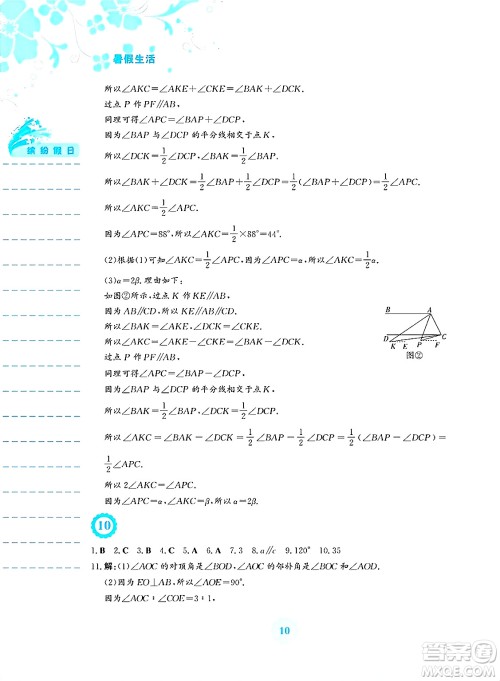 暑假生活
缤纷假日
所以∠AKC=∠AKE+∠CKE=∠BAK+∠DCK.
过点 P 作 PF∥AB,
同理可得∠APC=∠BAP+∠DCP.
因为∠BAP 与∠DCP 的平分线相交于点 K,
所以∠BAK=1/2∠BAP,∠DCK=1/2∠DCP,
所以∠BAK+∠DCK=1/2∠BAP+1/2∠DCP=1/2(∠BAP+∠DCP)=1/2∠APC,
所以∠AKC=1/2∠APC.
因为∠APC=88°,所以∠AKC=1/2×88°=44°.
(2)根据(1)可知∠AKC=1/2∠APC,因为∠APC=α,所以∠AKC=1/2α.
(3)α=2β.理由如下:
如图②所示,过点 K 作 KE∥AB,
因为 AB∥CD,所以 KE∥AB∥CD,
所以∠BAK=∠AKE,∠DCK=∠CKE,
所以∠AKC=∠AKE-∠CKE=∠BAK-∠DCK.
过点 P 作 PF∥AB,
同理可得∠APC=∠BAP-∠DCP.
因为∠BAP 与∠DCP 的平分线相交于点 K,
所以∠BAK=1/2∠BAP,∠DCK=1/2∠DCP,
所以∠AKC=∠BAK-∠DCK=1/2∠BAP-1/2∠DCP=1/2(∠BAP-∠DCP)=
1/2∠APC.
所以 2∠AKC=∠APC.
因为∠APC=α,∠AKC=β,所以 α=2β.
B A
D K E P F C
图②
10
1.B 2.C 3.B 4.C 5.A 6.A 7.D 8.a∥c 9.120° 10.35
11.解:(1)∠AOC 的对顶角是∠BOD,∠AOC 的邻补角是∠BOC,∠AOD.
(2)因为 EO⊥AB,所以∠AOE=90°,
因为∠AOC:∠COE=3:1,
10